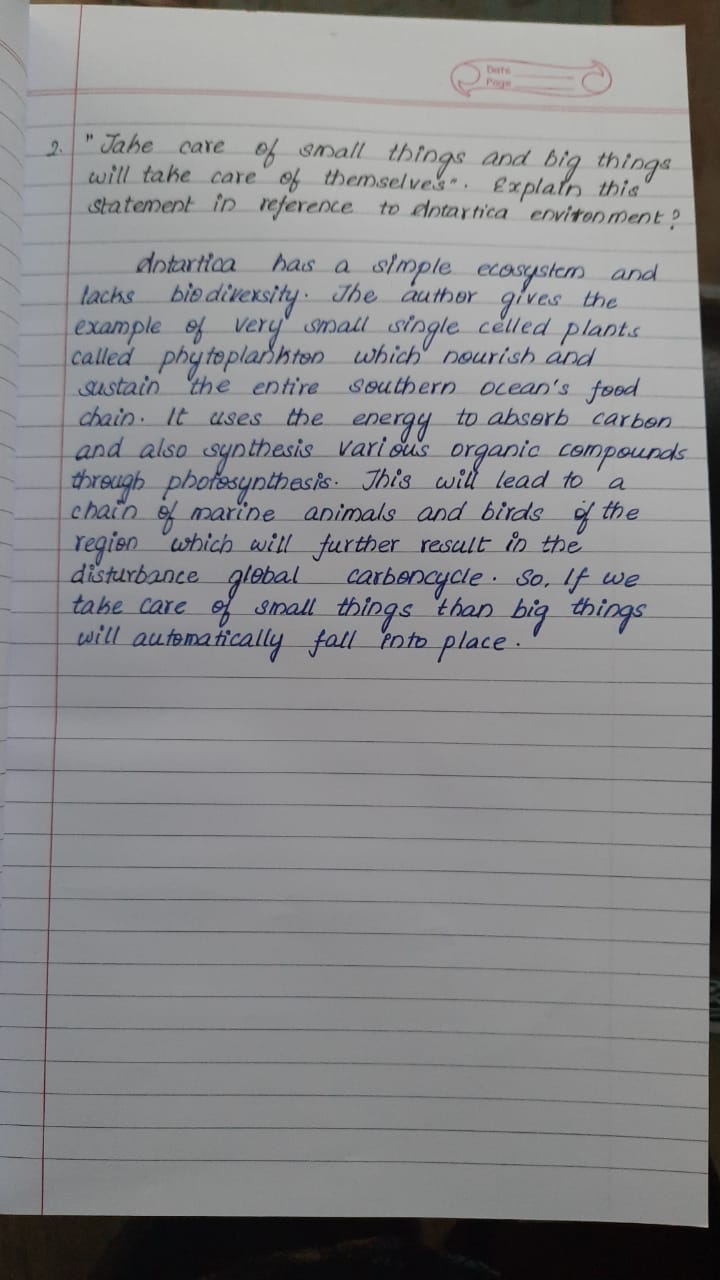 Date
Page
2. "Take care of small things and big things
will take care of themselves". Explain this
statement in reference to Antartica environment?
Antartica has a simple ecosystem and
lacks biodiversity. The author gives the
example of very small single celled plants
called phytoplankton which nourish and
sustain the entire southern ocean's food
chain. It uses the energy to absorb carbon
and also synthesis various organic compounds
through photosynthesis. This will lead to a
chain of marine animals and birds of the
region which will further result in the
disturbance global carboncycle. So, If we
take care of small things than big things
will automatically fall into place.